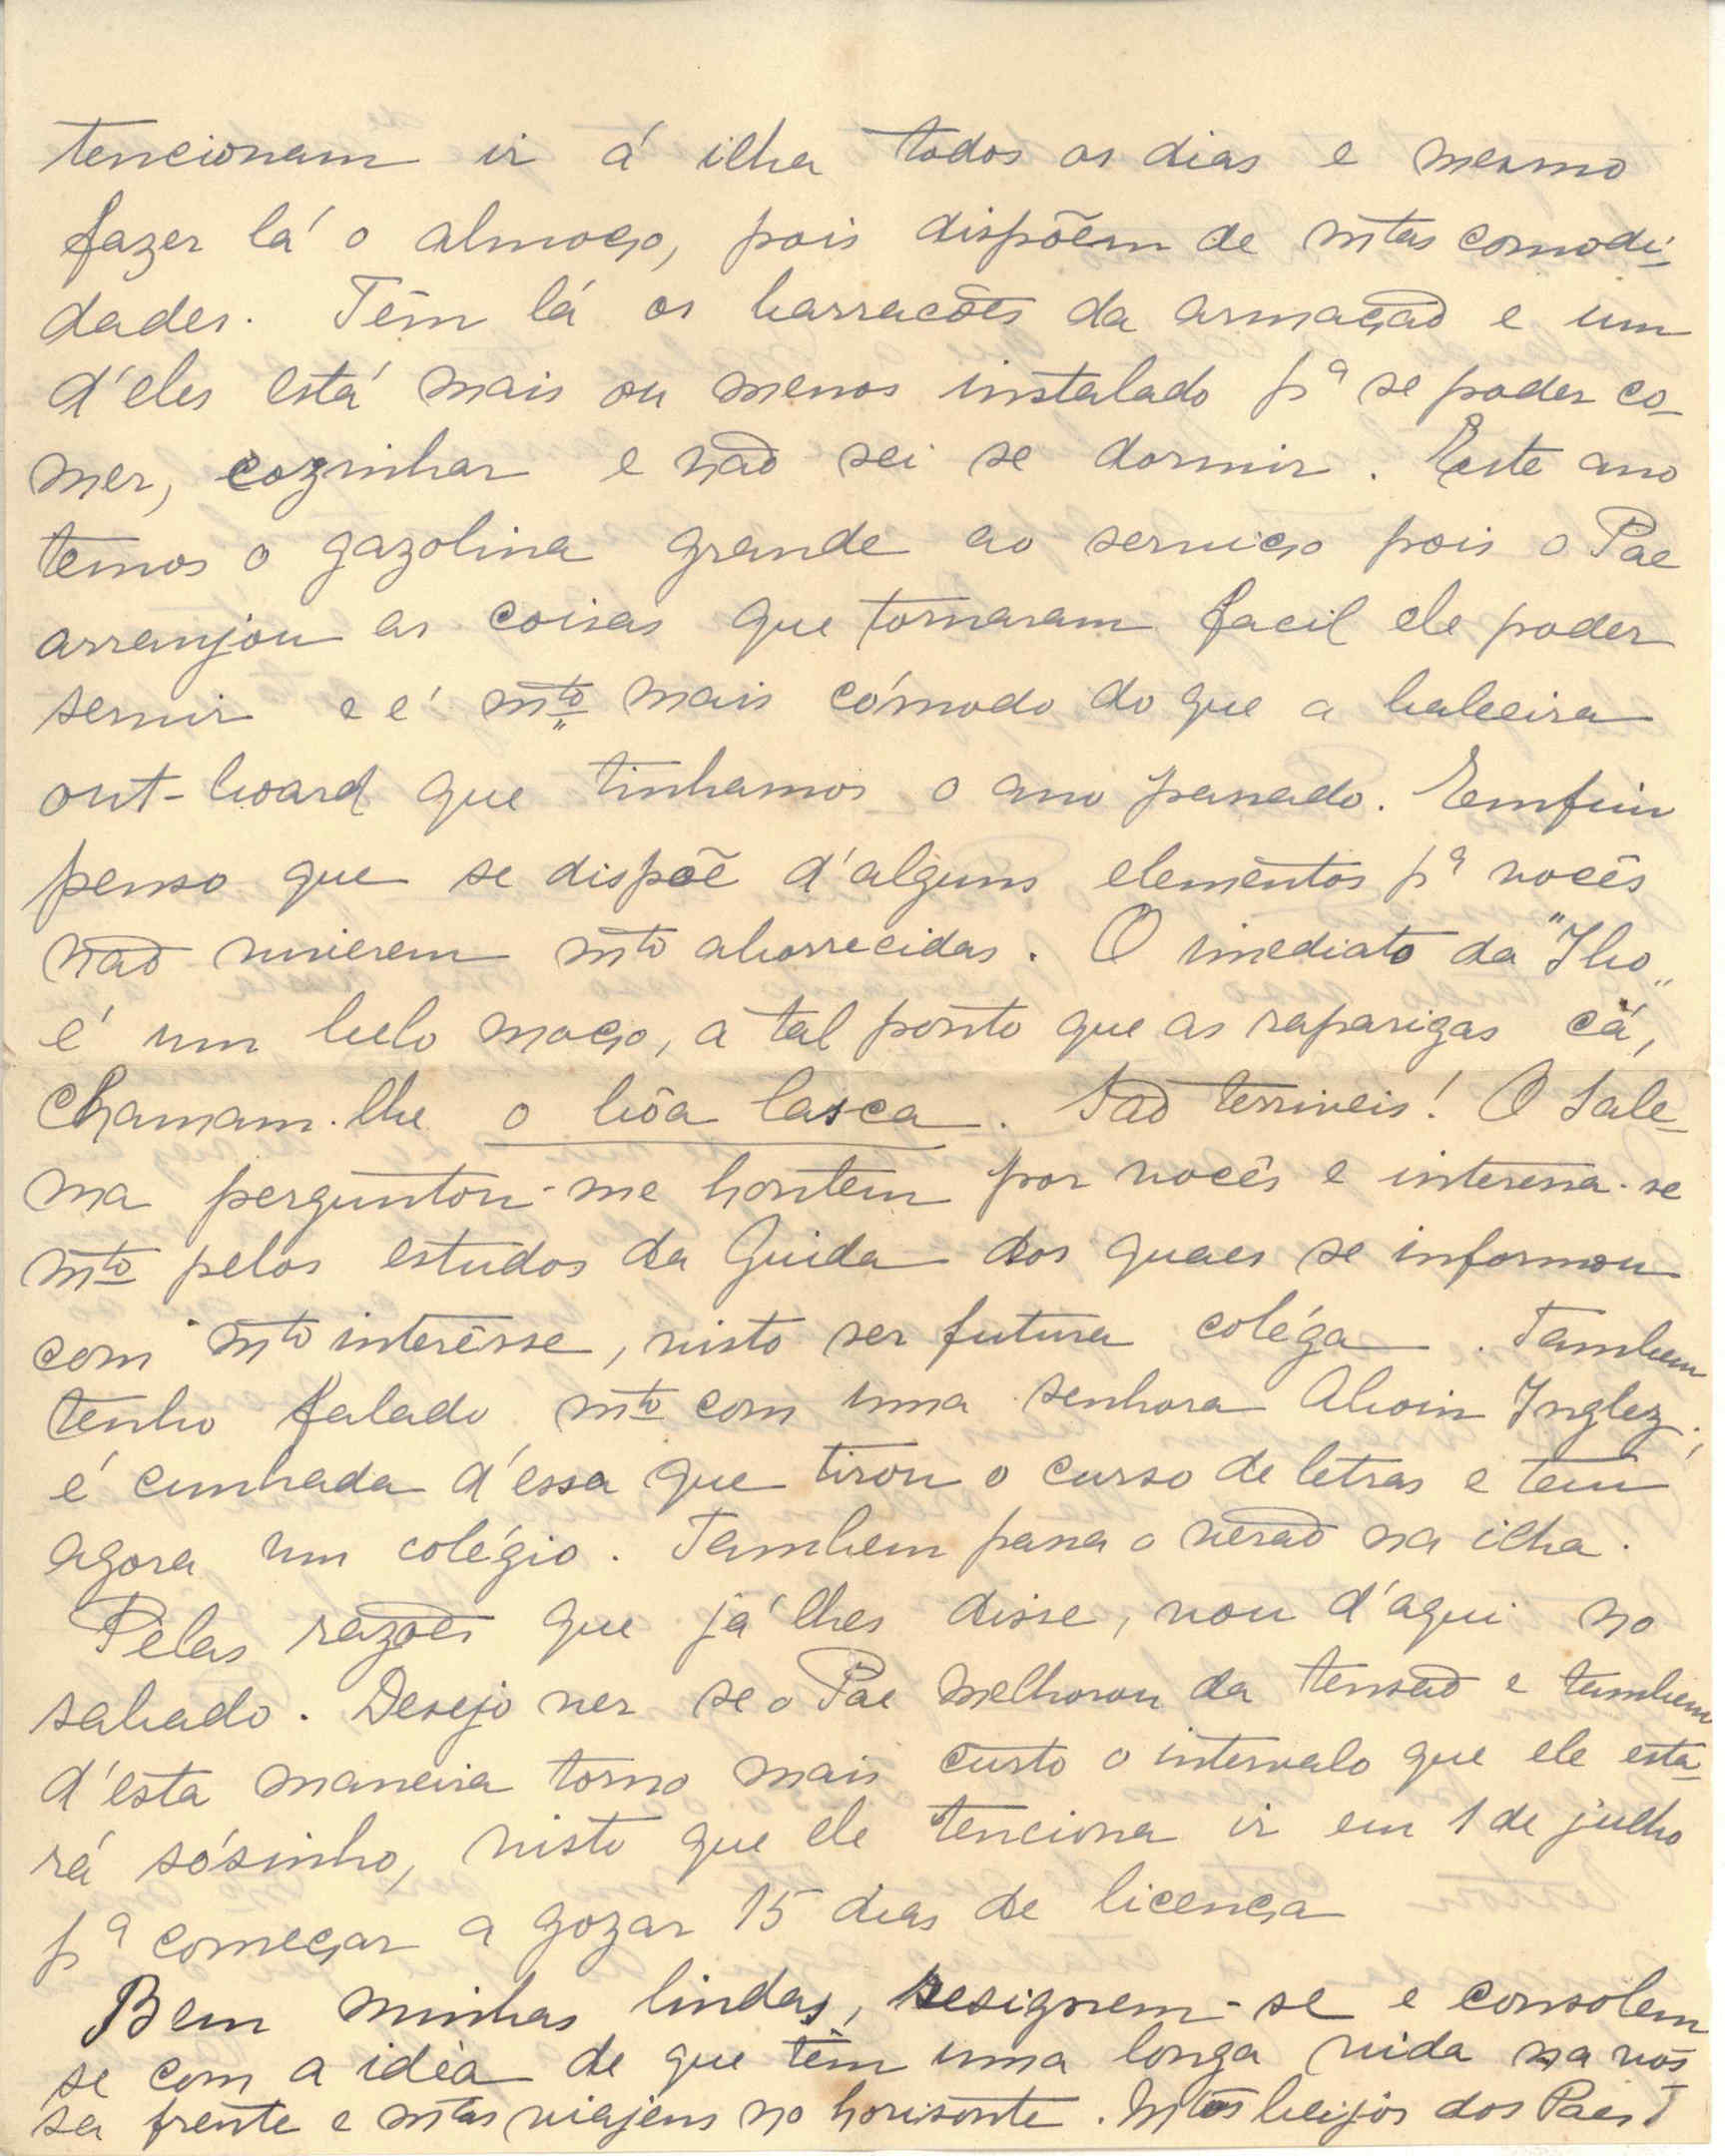 tencionam ir á ilha todos os dias e mesmo
fazer lá o almoço, pois dispõem de mtas comodi-
dades. Têm lá os barracões da armação e um
d'eles está mais ou menos instalado pª se poder co-
mer, cozinhar e não sei se dormir. Este ano
temos o gazolina grande ao serviço pois o Pae
arranjou as coisas que tornaram facil ele poder
servir e é mto mais cómodo do que a baleeira
out-board que tinhamos o ano passado. Emfim
penso que se dispõe d'alguns elementos pª vocês
não viverem mto aborrecidas. O imediato da "Ibo"
é um belo moço, a tal ponto que as raparigas cá,
chamam-lhe o bôa lasca. São terriveis! O Sale-
ma perguntou-me hontem por vocês e interessa-se
mto pelos estudos da Guida dos quaes se informou
com mto interêsse, visto ser futura coléga. Tambem
tenho falado mto com uma senhora Aboim Inglez;
é cunhada d'essa que tirou o curso de letras e tem
agora um colégio. Tambem passa o verão na ilha.
Pelas razões que já lhes disse, vou d'aqui no
sabado. Desejo ver se o Pae melhorou da tensão e tambem
d'esta maneira torno mais curto o intervalo que ele esta-
rá sósinho, visto que ele tenciona ir em 1 de julho
pª começar a gozar 15 dias de licença
Bem minhas lindas, resignem-se e consolem
se com a idéa de que têm uma longa vida na vos-
sa frente e mtas viajens no horisonte. Mtos beijos dos Paes